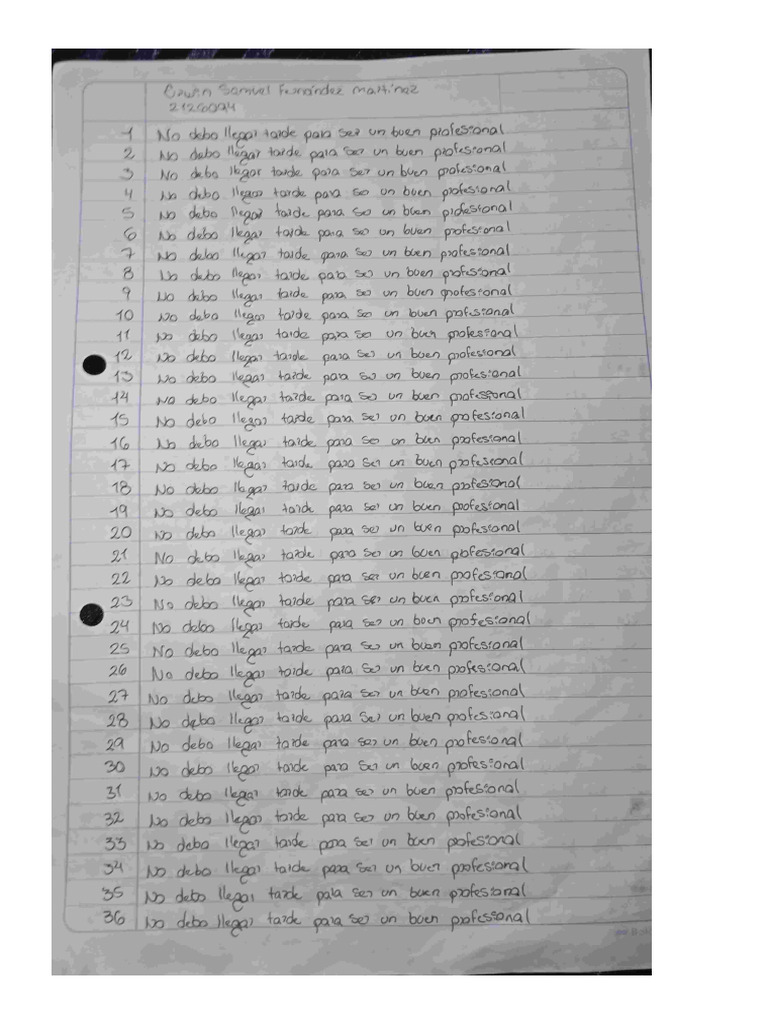 Samuel Fernández Martinez
1 No debo llegar tarde para ser un buen profesional
2 No debo llegar tarde para ser un buen profesional
3 No debo llegar tarde para ser un buen profesional
4 No debo llegar tarde para ser un buen profesional
5 No debo llegar tarde para ser un buen profesional
6 No debo llegar tarde para ser un buen profesional
7 No debo llegar tarde para ser un buen profesional
8 No debo llegar tarde para ser un buen profesional
9 No debo llegar tarde para ser un buen profesional
10 No debo llegar tarde para ser un buen profesional
11 No debo llegar tarde para ser un buen profesional
12 No debo llegar tarde para ser un buen profesional
13 No debo llegar tarde para ser un buen profesional
14 No debo llegar tarde para ser un buen profesional
15 No debo llegar tarde para ser un buen profesional
16 No debo llegar tarde para ser un buen profesional
17 No debo llegar tarde para ser un buen profesional
18 No debo llegar tarde para ser un buen profesional
19 No debo llegar tarde para ser un buen profesional
20 No debo llegar tarde para ser un buen profesional
21 No debo llegar tarde para ser un buen profesional
22 No debo llegar tarde para ser un buen profesional
23 No debo llegar tarde para ser un buen profesional
24 No debo llegar tarde para ser un buen profesional
25 No debo llegar tarde para ser un buen profesional
26 No debo llegar tarde para ser un buen profesional
27 No debo llegar tarde para ser un buen profesional
28 No debo llegar tarde para ser un buen profesional
29 No debo llegar tarde para ser un buen profesional
30 No debo llegar tarde para ser un buen profesional
31 No debo llegar tarde para ser un buen profesional
32 No debo llegar tarde para ser un buen profesional
33 No debo llegar tarde para ser un buen profesional
34 No debo llegar tarde para ser un buen profesional
35 No debo llegar tarde para ser un buen profesional
36 No debo llegar tarde para ser un buen profesional